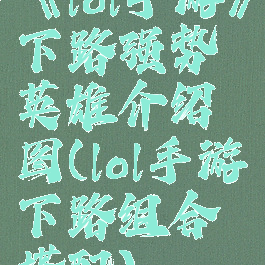 《lol手游》
下路强势
英雄介绍
图(lol手游
下路组合
搭配)